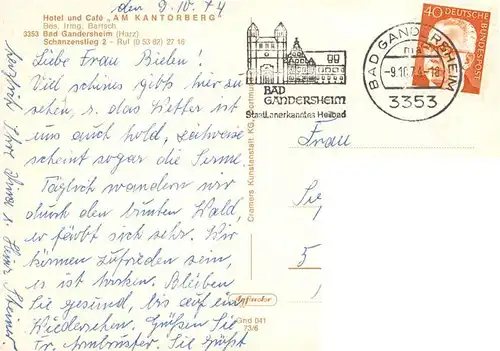 Hotel und Café „AM KANTORBERG"
Bes. Irmg. Bartsch
3353 Bad Gandersheim (Harz)
Schanzenstieg 2 - Ruf (0 53 82) 27 16
den 9.10.74
Liebe Frau Bielen!
Viel schönes gibts hier zu
sehen, u. das Wetter ist
uns auch hold, zeitweise
scheint sogar die Sonne.
Täglich wandern wir
durch den bunten Wald,
er färbt sich sehr. Wir
können zufrieden sein,
es ist trocken. Bleiben
Sie gesund, bis auf ein
Wiedersehen. Grüßen Sie
Fr. Armbruster. Sie Grüßt
herzlich Ihre u. Heinz Steiner.
Cramers Kunstanstalt KG, Dortmund
Gnd 041
73/6
BAD
GANDERSHEIM
Staatl. anerkanntes Heilbad
BAD GANDERSHEIM
-9.10.74-18
3353
40
DEUTSCHE
BUNDESPOST
Frau
5